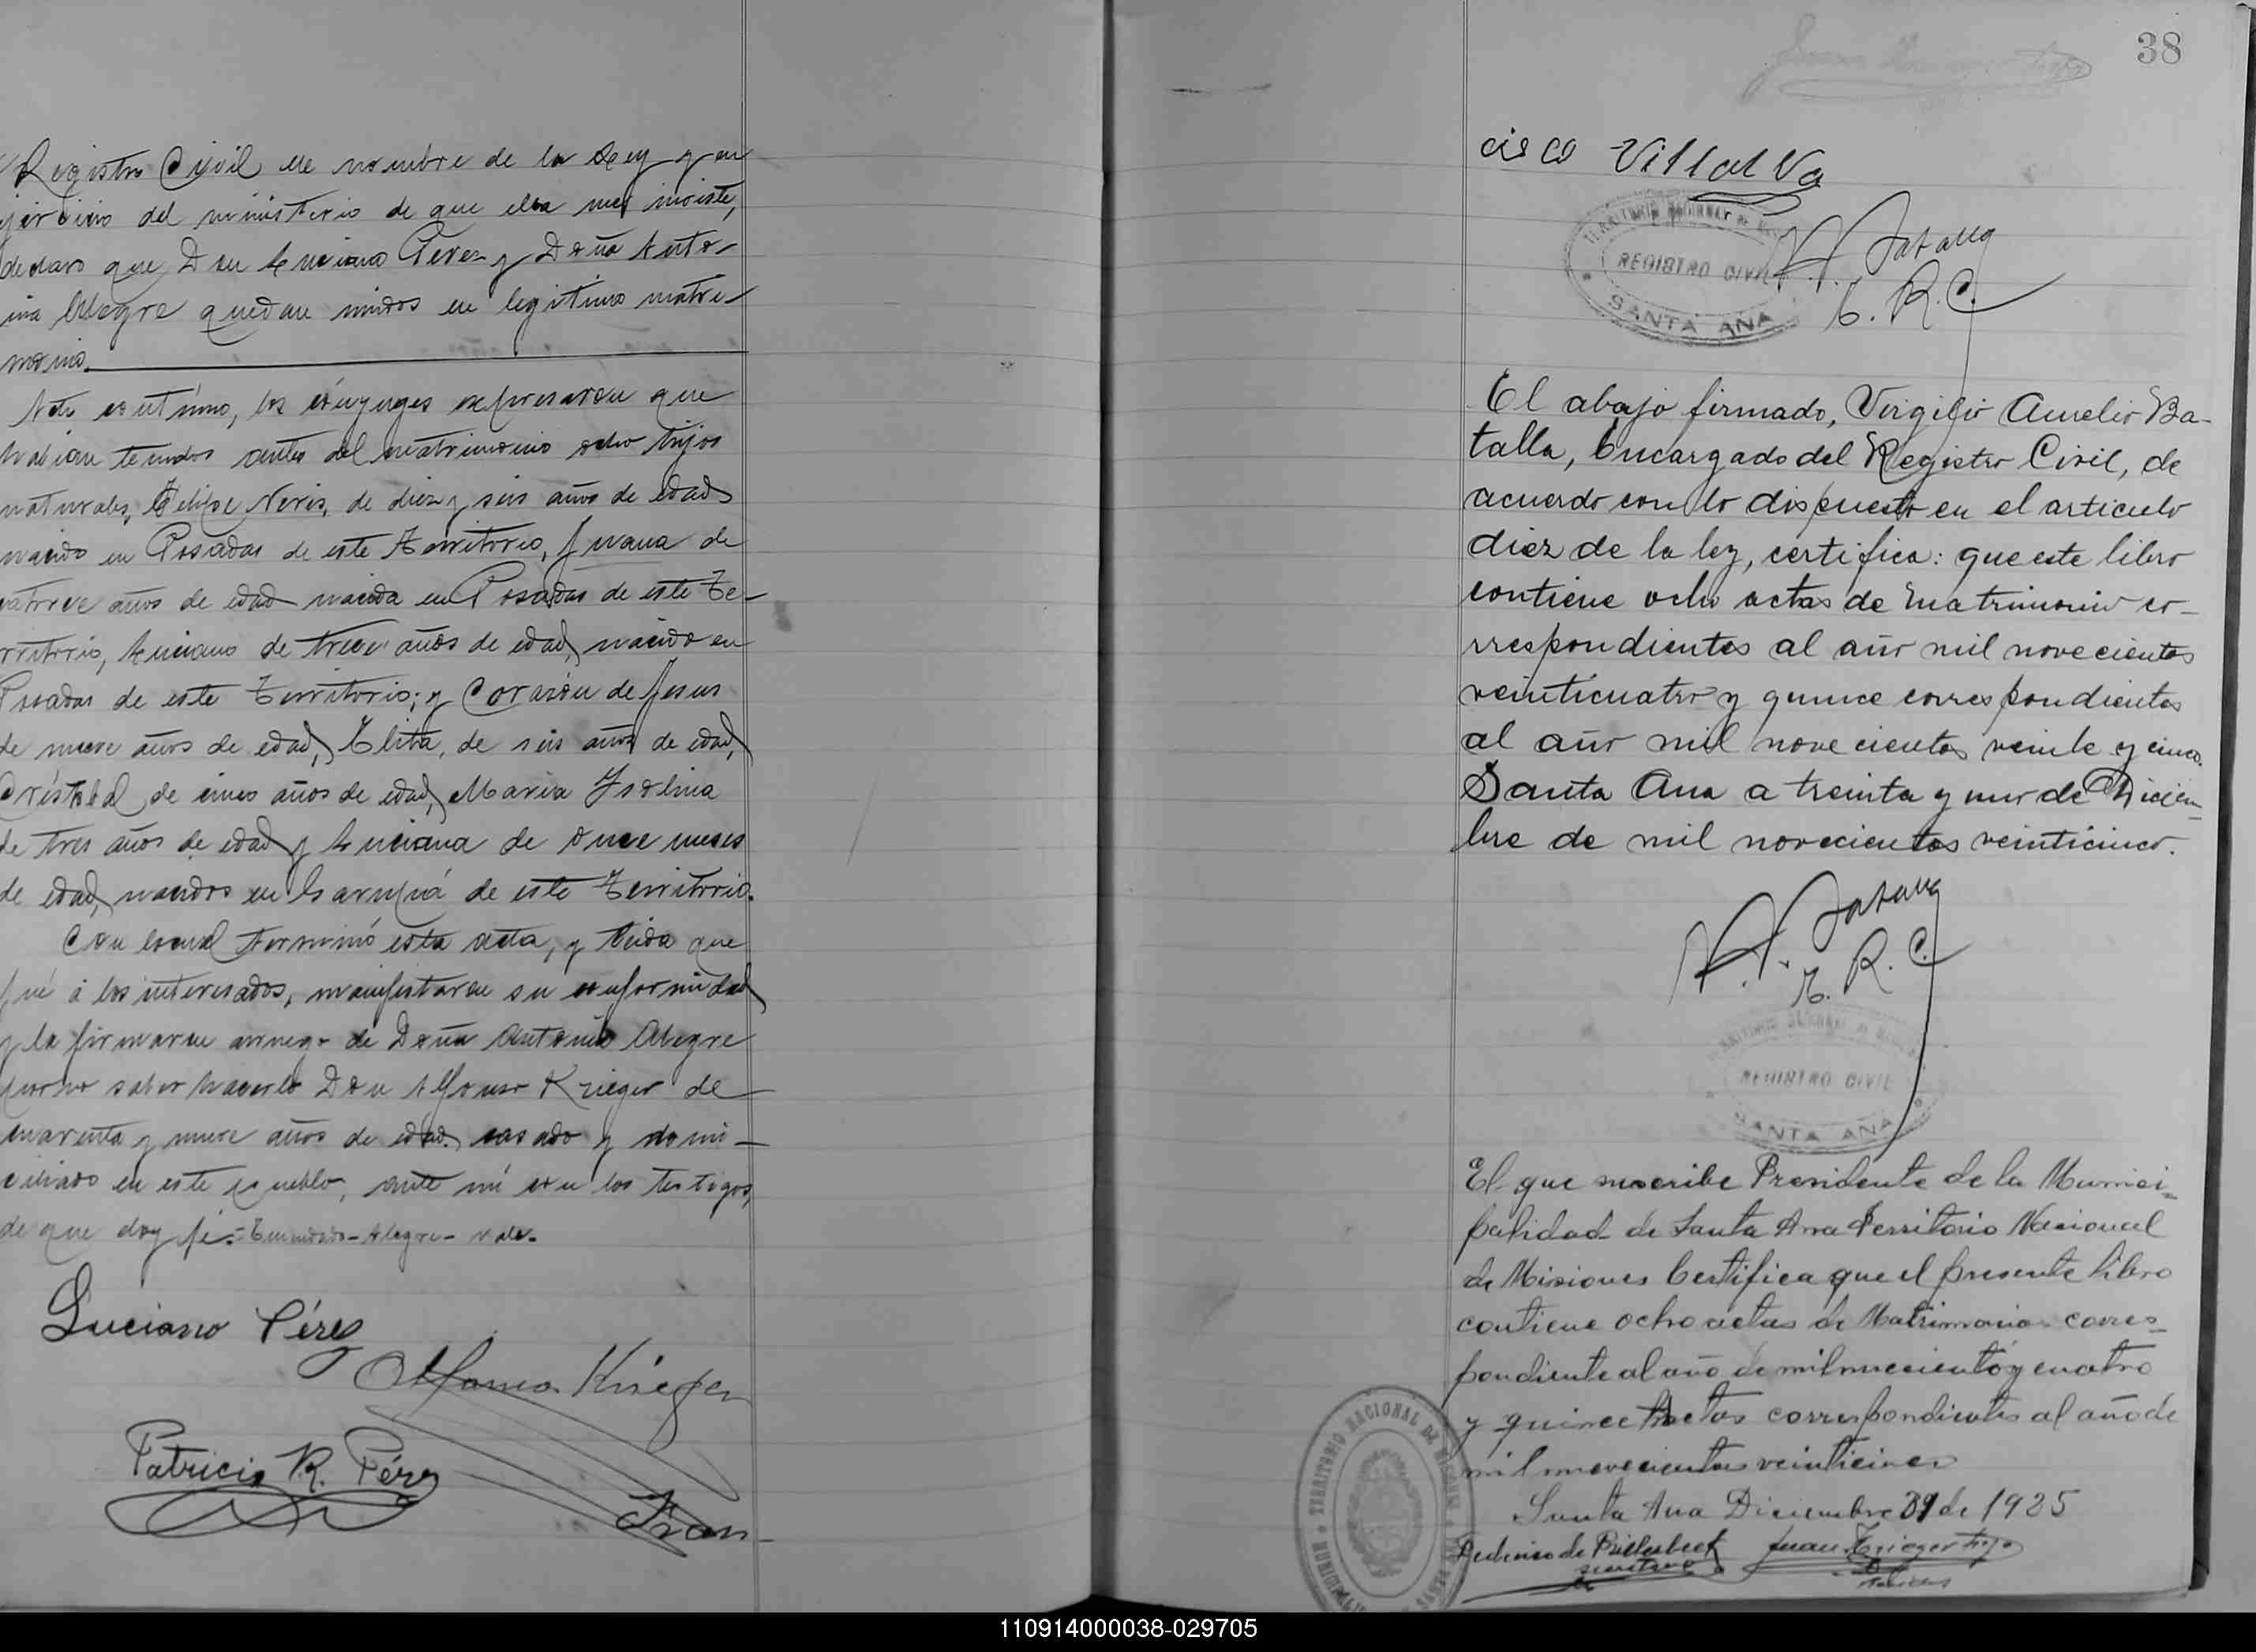 Registro Civil en nombre de la Ley y en
ejercicio del ministerio de que ella me inviste,
declaro que Don Luciano Perez y Doña Anto-
nia Alegre quedan unidos en legitimo matri-
monio.
Acto continuo, los cónyuges expresaron que
habian tenidos antes del matrimonio ocho hijos
naturales, Felipe Neris, de diez y seis años de edad
nacido en Posadas de este Territorio, Juana de
catorce años de edad nacida en Posadas de este Te-
rritorio, Luciano de trece años de edad, nacido en
Posadas de este Territorio; y Corazón de Jesus
de nueve años de edad, Elita, de seis años de edad,
Cristobal de cinco años de edad, Maria Isolina
de tres años de edad y Luciana de once meses
de edad, nacidos en Garupá de este Territorio.
Con lo cual terminó esta acta, y leida que
fué á los interesados, manifestaron su conformidad
y la firmaron a ruego de Doña Antonia Alegre
por no saber hacerlo Don Alfonso Krieger de
cuarenta y nueve años de edad casado y domi-
ciliado en este pueblo, ante mi con los testigos,
de que doy fé.- Enmendado - Alegre - Vale.
Luciano Pérez
Alfonso Krieger
Patricio R. Pérez
Fran-
38
cisco Villalva
TERRITORIO NACIONAL DE
REGISTRO CIVIL
SANTA ANA
V. A. Batalla
E. R. C.
El abajo firmado, Virgilio Aurelio Ba-
talla, Encargado del Registro Civil, de
acuerdo con lo dispuesto en el articulo
diez de la ley, certifica: que este libro
contiene ocho actas de matrimonio co-
rrespondientes al año mil novecientos
veinticuatro y quince correspondientes
al año mil novecientos veinte y cinco.
Santa Ana a treinta y uno de Diciem-
bre de mil novecientos veinticinco.
V. A. Batalla
E. R. C.
REGISTRO CIVIL
SANTA ANA
El que suscribe Presidente de la Munici-
palidad de Santa Ana Territorio Nacional
de Misiones Certifica que el presente libro
contiene ocho actas de Matrimonio corres-
pondiente al año de mil nuecientos y cuatro
y quince Actas correspondientes al año de
mil nuevecientos veinticinco
Santa Ana Diciembre 31 de 1925
TERRITORIO NACIONAL DE
Federico de
secretario
Juan Krieger hijo
110914000038-029705